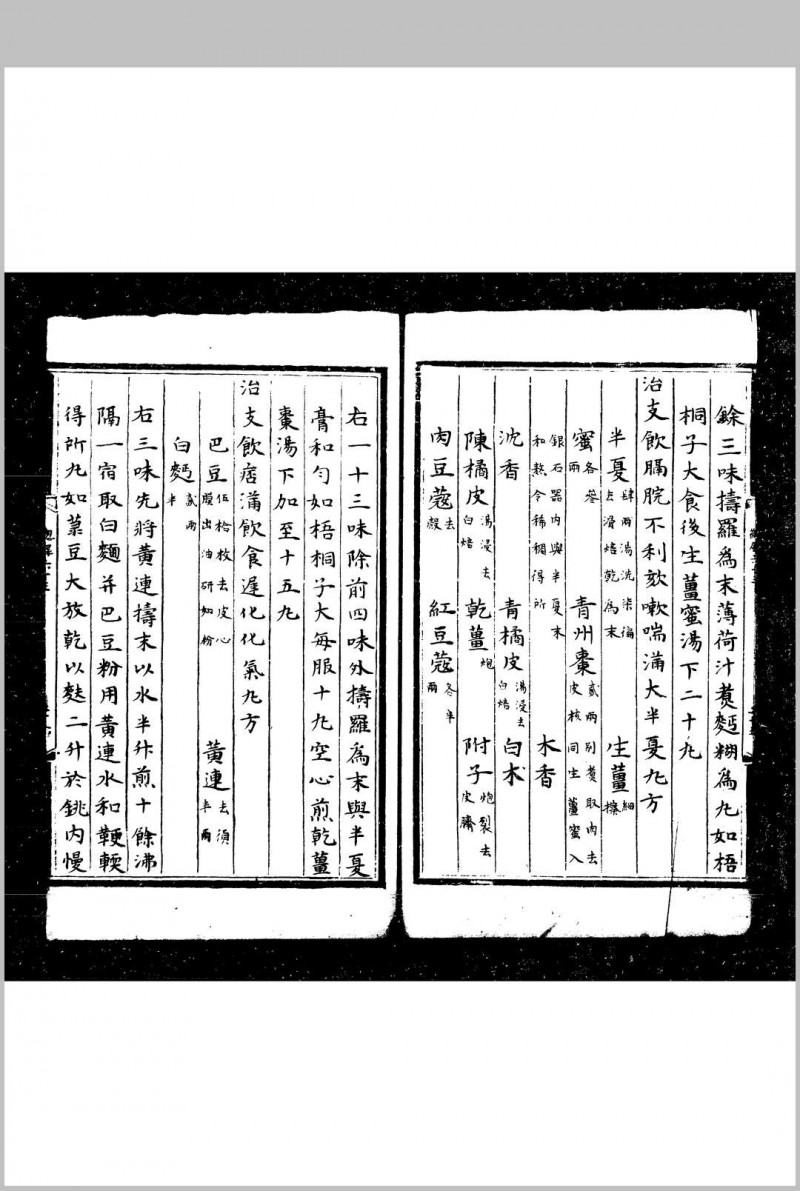 餘三味擣羅為末薄荷汁煑麪糊為丸如梧
桐子大食後生薑蜜湯下二十丸
治支飲膈脘不利欬嗽喘滿大半夏丸方
半夏肆兩湯洗柒徧去滑焙乾為末 生薑細擦
蜜各叁兩 青州棗貳兩別煑取肉去皮核同生薑蜜入
銀石器内與半夏末和熬令稀稠得所
沈香 青橘皮湯浸去白焙 木香
陳橘皮湯浸去白焙 乾薑炮 白朮
肉豆蔻去殼 紅豆蔻各半兩 附子炮裂去皮臍
右一十三味除前四味外擣羅為末與半夏
膏和勻如梧桐子大每服十丸空心煎乾薑
棗湯下加至十五丸
治支飲痞滿飲食遲化化氣丸方
巴豆伍拾枚去皮心膜出油研如粉 黃連去須半兩
白麪貳兩半
右三味先將黃連擣末以水半升煎十餘沸
隔一宿取白麵并巴豆粉用黃連水和鞕輭
得所丸如菉豆大放乾以麩二升於銚内慢